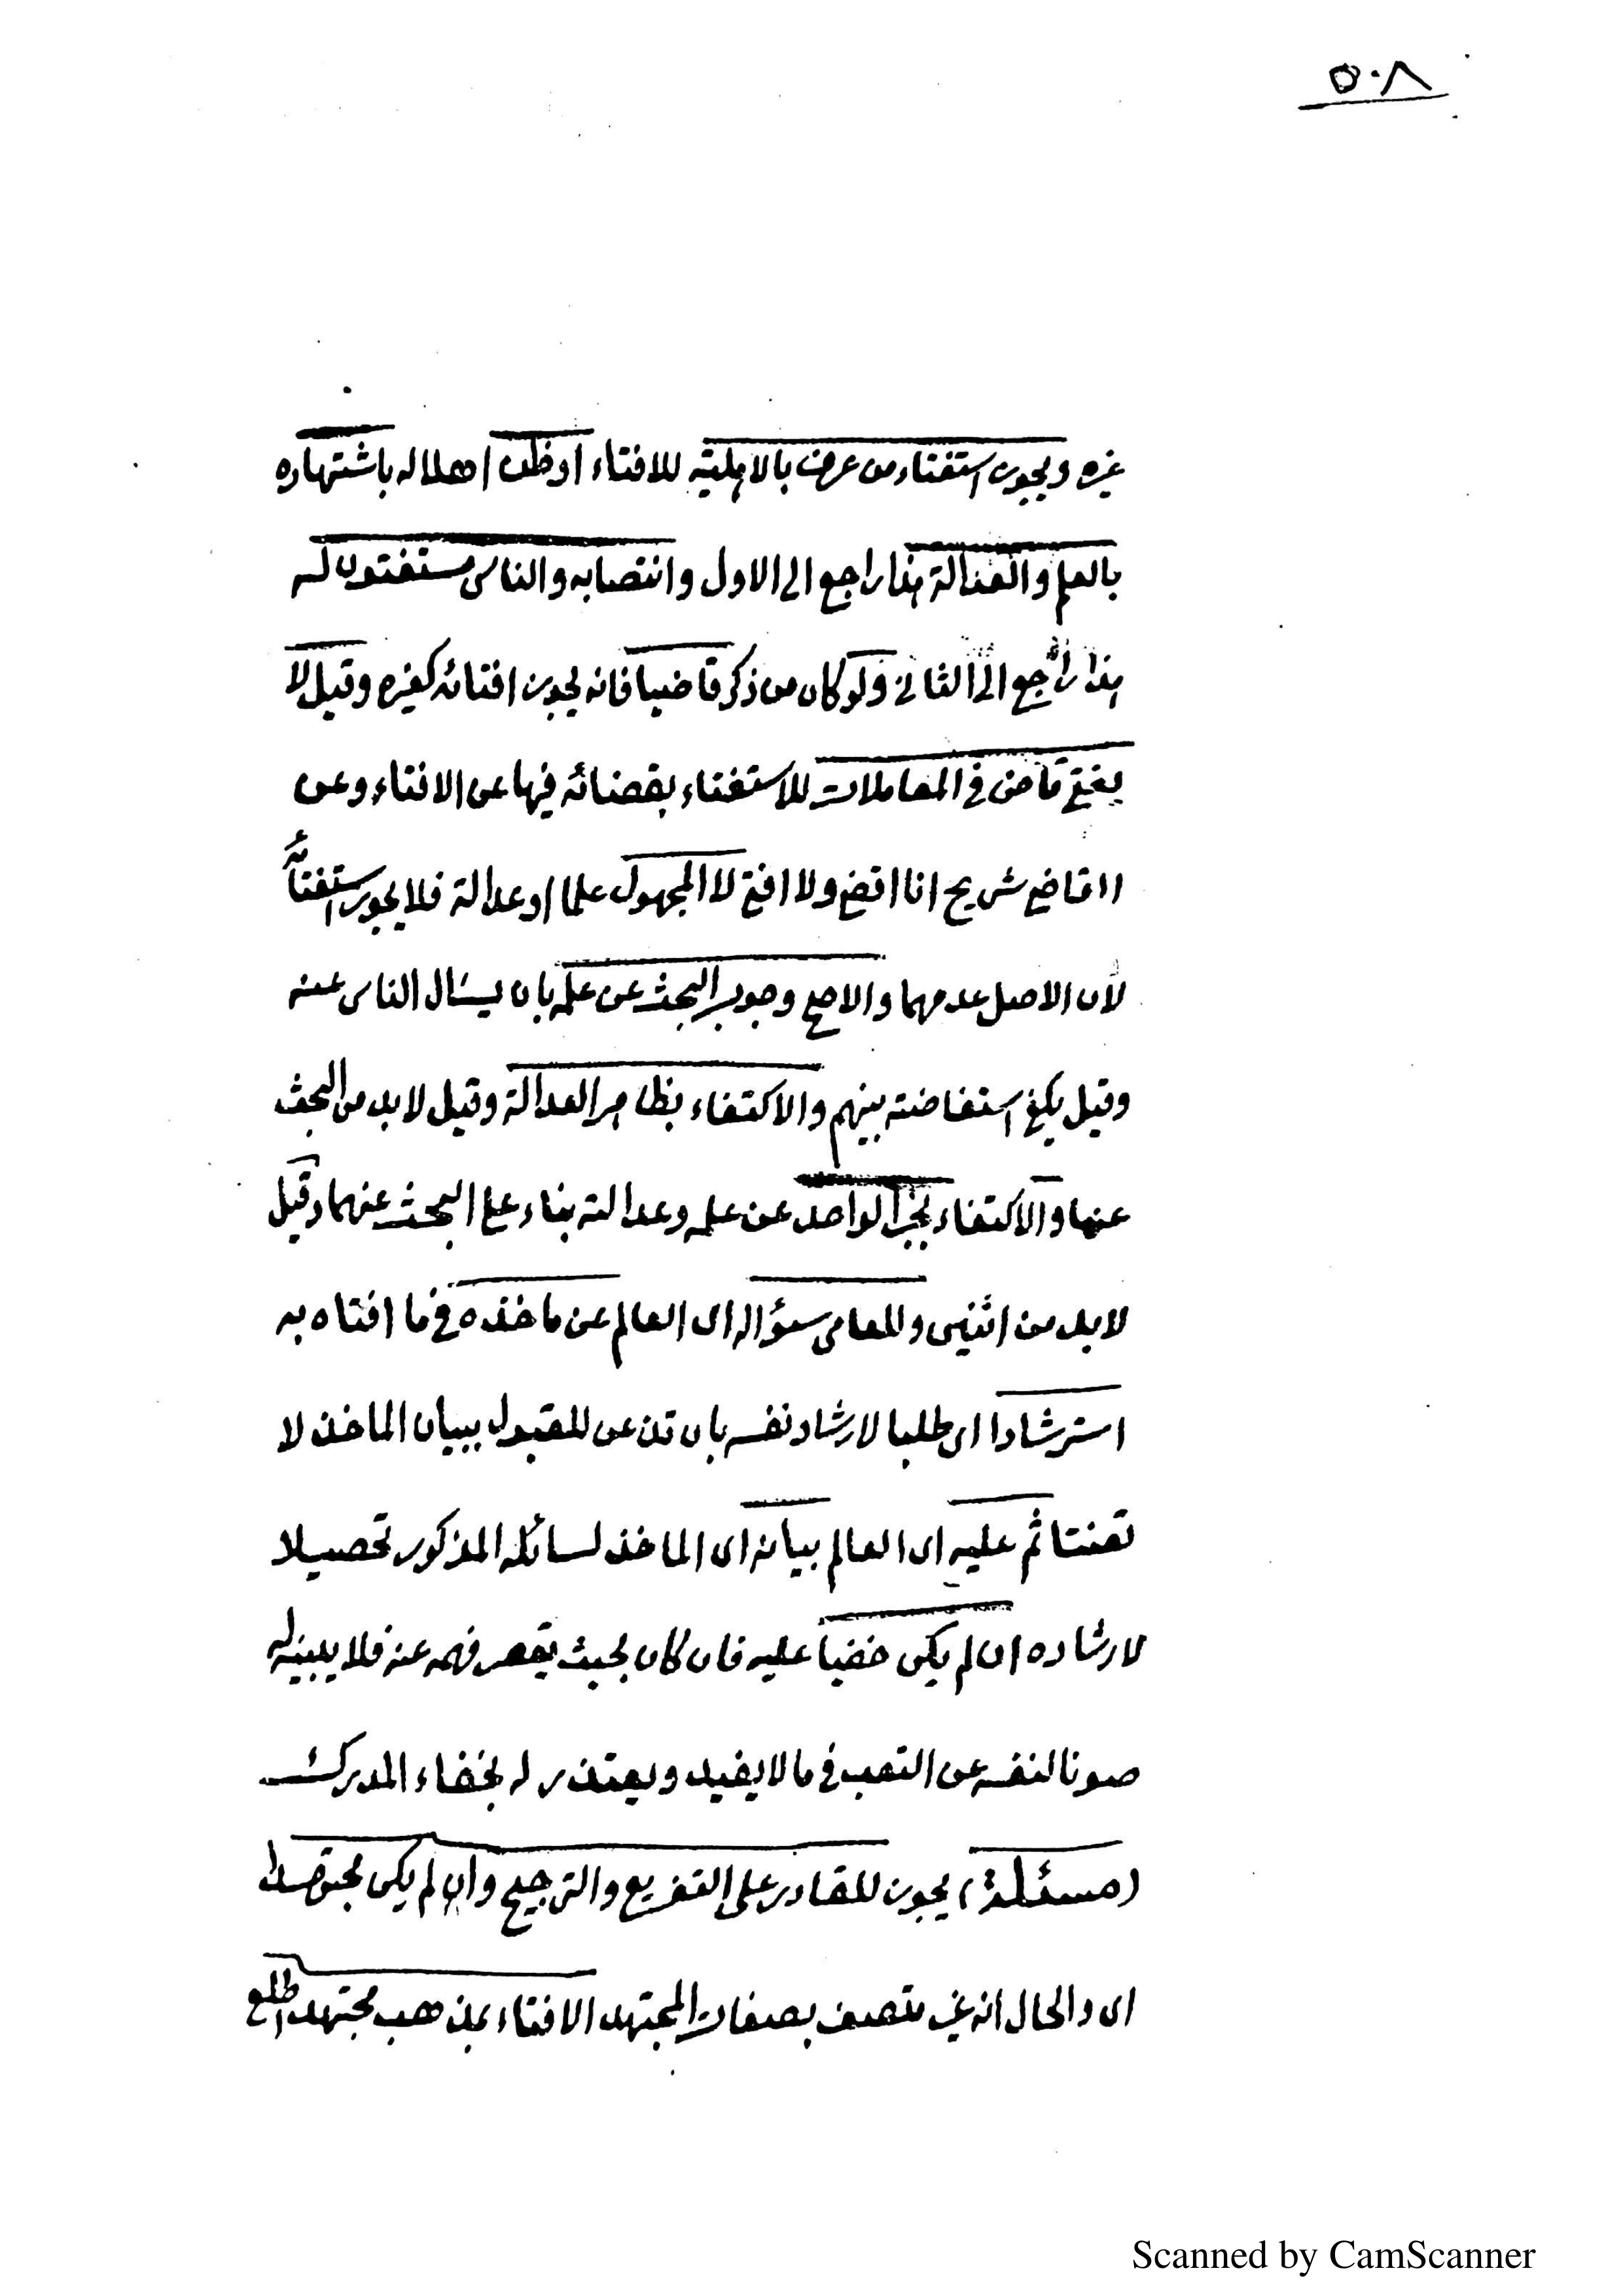 ٥٠٨
غيره ويجوز استفتاء من عرف بالاهلية للافتاء او ظن اهلا له باشتهاره
بالعلم والعدالة هذا راجع الى الاول وانتصابه والناس مستفتون له
هذا راجع الى الثانى ولو كان من ذكر قاضيا فانه يجوز افتائه كغيره وقيل لا
يفتى قاض فى المعاملات للاستغناء بقضائه فيها عن الافتاء وعن
القاضى شريح انا اقضى ولا افتى لا المجهول علما او عدالة فلا يجوز استفتائه
لأن الاصل عدمهما والاصح وجوب البحث عن علمه بان يسئال الناس عنه
وقيل يكفى استفاضته بينهم والاكتفاء بظاهر العدالة وقيل لا بد من البحث
عنها والاكتفاء بخبر الواحد عن علمه وعدالته بناء على البحث عنهما وقيل
لا بد من اثنين وللعامى سؤاله اى العالم عن ماخذه فى ما افتاه به
استرشادا اى طلبا لارشاد نفسه بان تذعن للقبول ببيان الماخذ لا
تعنتا ثم عليه اى العالم بيانه اى الماخذ لسائله المذكور تحصيلا
لارشاده ان لم يكن خفيا عليه فان كان بحيث يقصر فهمه عنه فلا يبينه له
صونا لنفسه عن التعب فى ما لا يفيد ويعتذر له بخفاء المدرك
(مسئلة) يجوز للقادر على التفريع والترجيح وان لم يكن مجتهدا
اى والحال انه غير متصف بصفات المجتهد الافتاء بمذهب مجتهد اطلع
Scanned by CamScanner